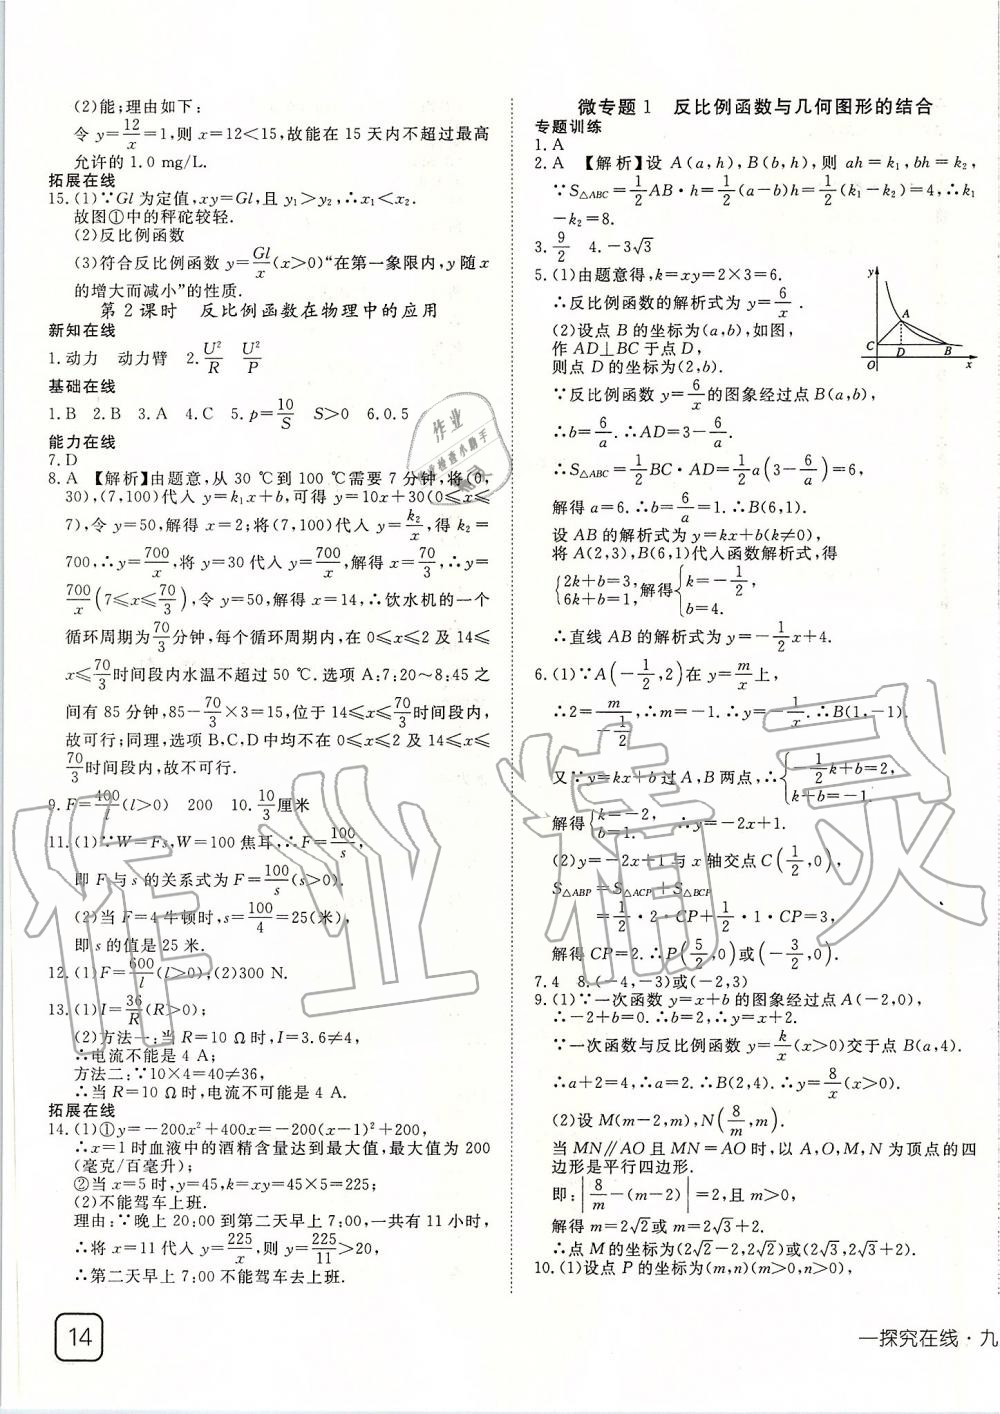 (2)能;理由如下:
令 y=12/x=1,则 x=12<15,故能在 15 天内不超过最高
允许的 1.0 mg/L.
拓展在线
15.(1)∵Gl 为定值,xy=Gl,且 y₁>y₂,∴x₁<x₂.
故图①中的秤砣较轻.
(2)反比例函数
(3)符合反比例函数 y=Gl/x(x>0)“在第一象限内,y 随 x
的增大而减小”的性质.
第 2 课时 反比例函数在物理中的应用
新知在线
1.动力 动力臂 2.U²/R U²/P
基础在线
1.B 2.B 3.A 4.C 5.p=10/S S>0 6.0.5
能力在线
7.D
8.A 【解析】由题意,从 30 ℃到 100 ℃需要 7 分钟,将(0,
30),(7,100)代入 y=k₁x+b,可得 y=10x+30(0≤x≤
7),令 y=50,解得 x=2;将(7,100)代入 y=k₂/x,得 k₂=
700,∴y=700/x,将 y=30 代入 y=700/x,解得 x=70/3,∴y=
700/x(7≤x≤70/3),令 y=50,解得 x=14,∴饮水机的一个
循环周期为70/3分钟,每个循环周期内,在 0≤x≤2 及 14≤
x≤70/3时间段内水温不超过 50 ℃.选项 A:7:20~8:45 之
间有 85 分钟,85-70/3×3=15,位于 14≤x≤70/3时间段内,
故可行;同理,选项 B、C、D 中均不在 0≤x≤2 及 14≤x≤
70/3时间段内,故不可行.
9.F=400/l(l>0) 200 10.10/3厘米
11.(1)∵W=Fs,W=100 焦耳,∴F=100/s,
即 F 与 s 的关系式为 F=100/s(s>0).
(2)当 F=4 牛顿时,s=100/4=25(米),
即 s 的值是 25 米.
12.(1)F=600/l(l>0);(2)300 N.
13.(1)I=36/R(R>0);
(2)方法一:当 R=10 Ω 时,I=3.6≠4,
∴电流不可能是 4 A;
方法二:∵10×4=40≠36,
∴当 R=10 Ω 时,电流不可能是 4 A.
拓展在线
14.(1)①y=-200x²+400x=-200(x-1)²+200,
∴x=1 时血液中的酒精含量达到最大值,最大值为 200
(毫克/百毫升);
②当 x=5 时,y=45,k=xy=45×5=225;
(2)不能驾车上班.
理由:∵晚上 20:00 到第二天早上 7:00,一共有 11 小时,
∴将 x=11 代入 y=225/x,则 y=225/11>20,
∴第二天早上 7:00 不能驾车去上班.
14
微专题 1 反比例函数与几何图形的结合
专题训练
1.A
2.A 【解析】设 A(a,h),B(b,h),则 ah=k₁,bh=k₂,
∵S△ABC=1/2AB·h=1/2(a-b)h=1/2(k₁-k₂)=4,∴k₁
-k₂=8.
3.9/2 4.-3√3
5.(1)由题意得,k=xy=2×3=6.
∴反比例函数的解析式为 y=6/x.
(2)设点 B 的坐标为(a,b),如图,
作 AD⊥BC 于点 D,
则点 D 的坐标为(2,b).
y A C D B O x
∵反比例函数 y=6/x的图象经过点 B(a,b),
∴b=6/a.∴AD=3-6/a.
∴S△ABC=1/2BC·AD=1/2a(3-6/a)=6,
解得 a=6.∴b=6/a=1.∴B(6,1).
设 AB 的解析式为 y=kx+b(k≠0),
将 A(2,3),B(6,1)代入函数解析式,得
{2k+b=3, 6k+b=1,解得{k=-1/2, b=4.
∴直线 AB 的解析式为 y=-1/2x+4.
6.(1)∵A(-1/2,2)在 y=m/x上,
∴2=m/(-1/2),∴m=-1.∴y=-1/x.∴B(1,-1).
又∵y=kx+b 过 A、B 两点,∴{-1/2k+b=2, k+b=-1.
解得{k=-2, b=1. ∴y=-2x+1.
(2)y=-2x+1 与 x 轴交点 C(1/2,0),
S△ABP=S△ACP+S△BCP
=1/2·2·CP+1/2·1·CP=3,
解得 CP=2.∴P(5/2,0)或(-3/2,0)
7.4 8.(-4,-3)或(-2,3)
9.(1)∵一次函数 y=x+b 的图象经过点 A(-2,0),
∴-2+b=0.∴b=2,∴y=x+2.
∵一次函数与反比例函数 y=k/x(x>0)交于点 B(a,4).
∴a+2=4.∴a=2.∴B(2,4).∴y=8/x(x>0).
(2)设 M(m-2,m),N(8/m,m).
当 MN∥AO 且 MN=AO 时,以 A,O,M,N 为顶点的四
边形是平行四边形.
即:|8/m-(m-2)|=2,且 m>0,
解得 m=2√2或 m=2√3+2.
∴点 M 的坐标为(2√2-2,2√2)或(2√3,2√3+2)
10.(1)设点 P 的坐标为(m,n)(m>0,n>0),
一探究在线·九
作业精灵
作业
检查小助手